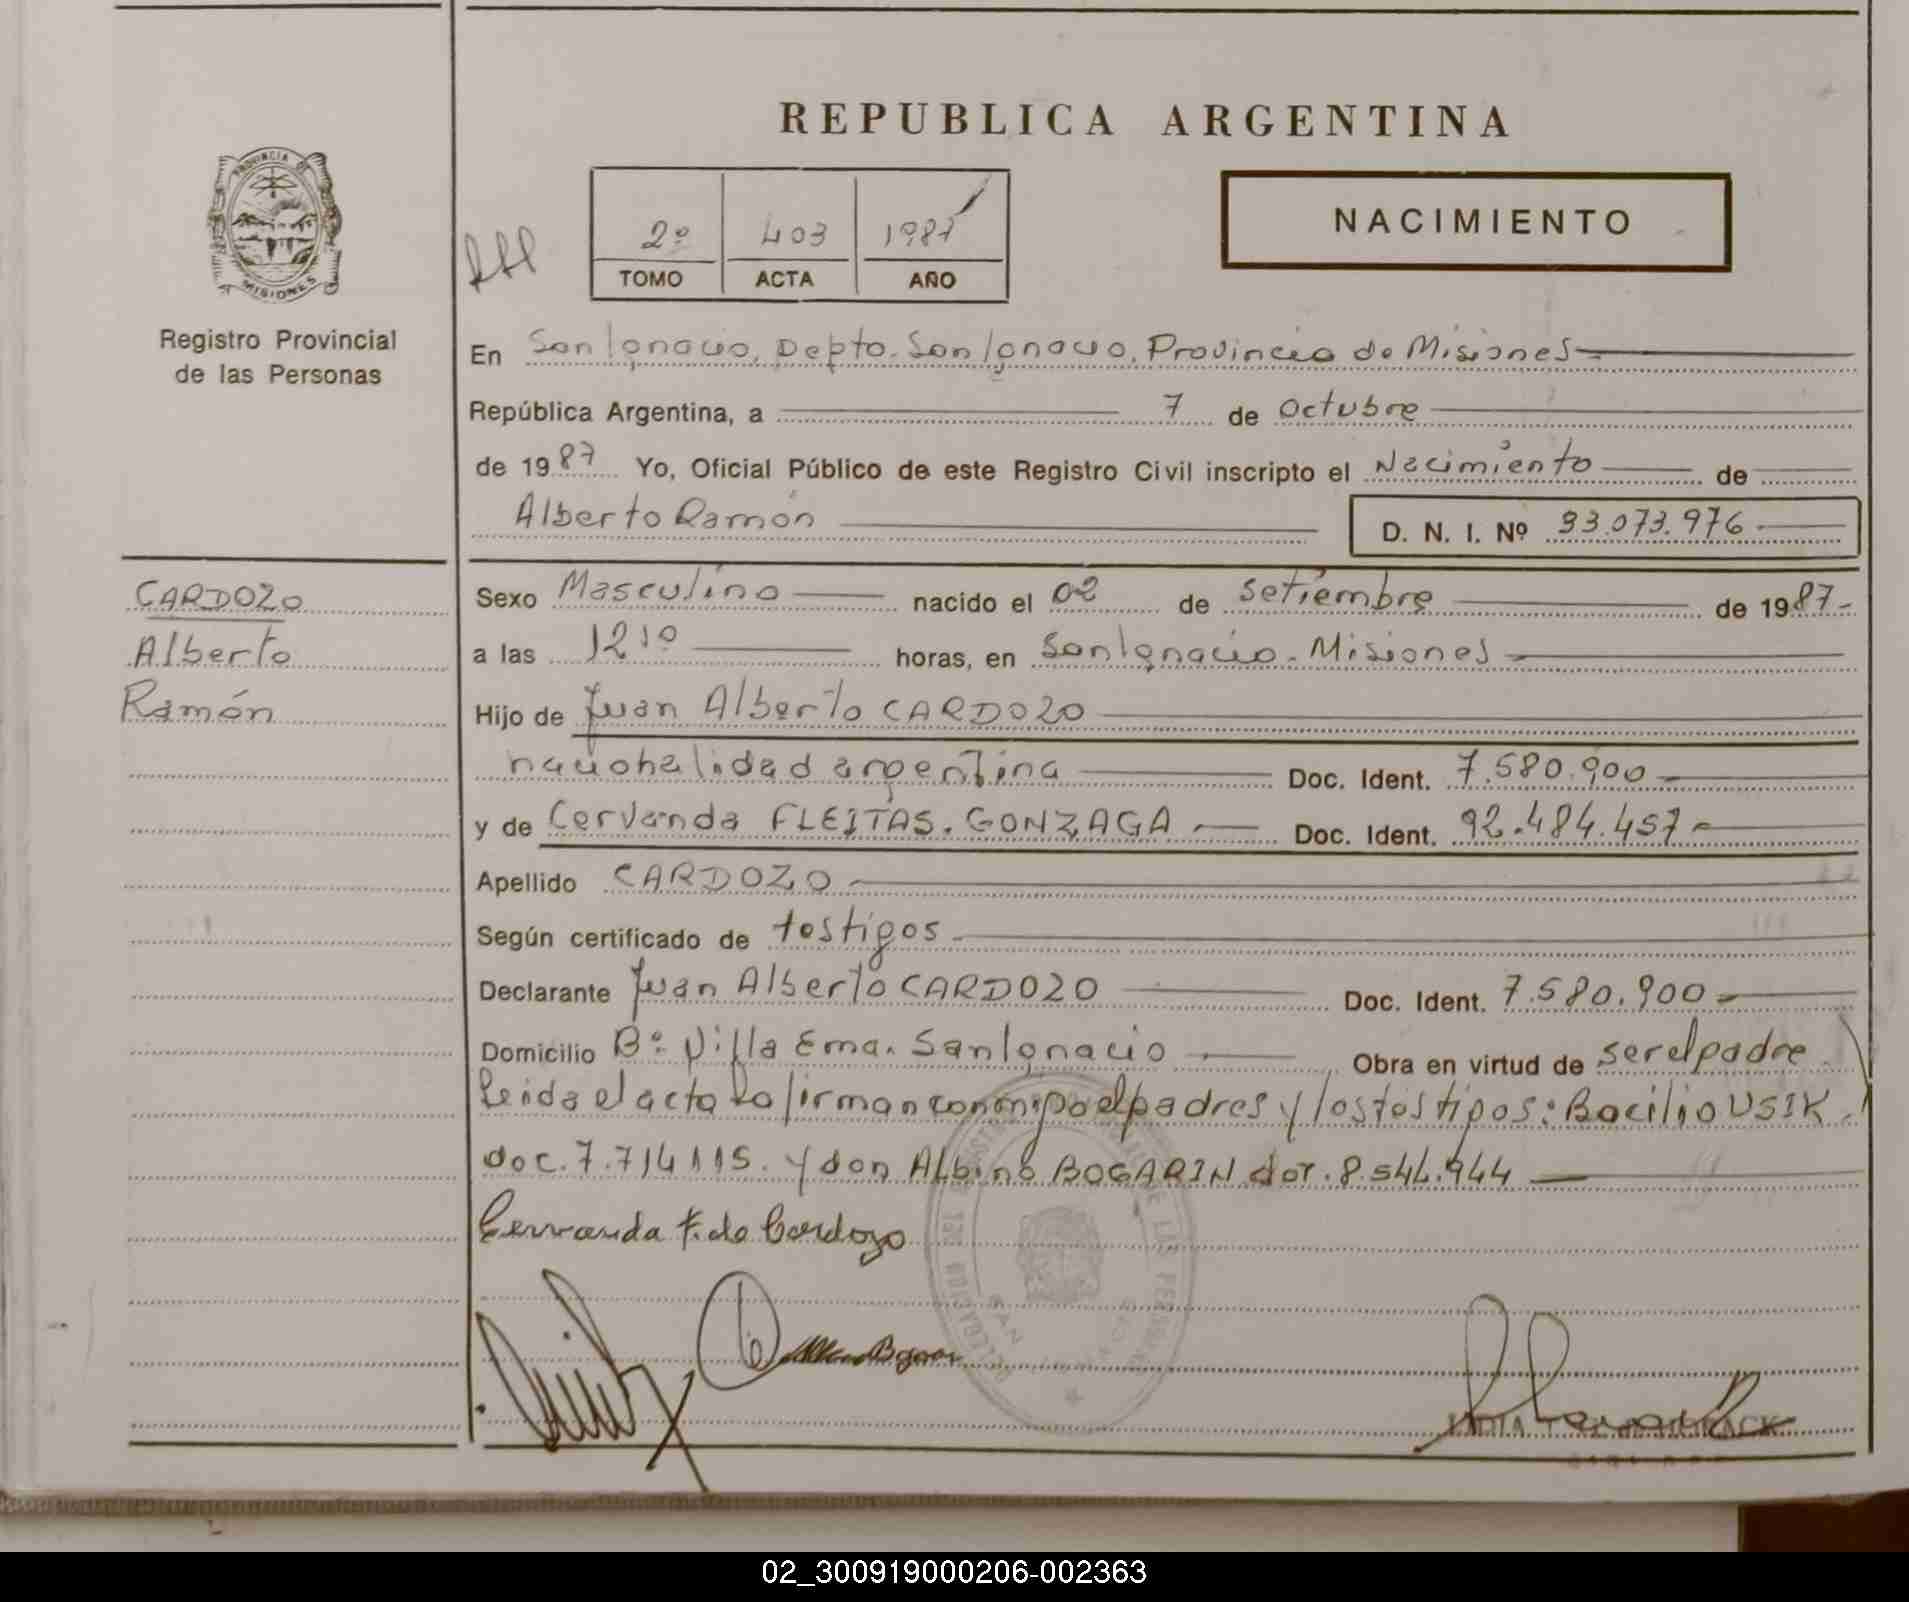 REPUBLICA ARGENTINA
PROVINCIA DE
MISIONES
Registro Provincial
de las Personas
2º 403 1987
TOMO ACTA AÑO
NACIMIENTO
En San Ignacio, Depto. San Ignacio, Provincia de Misiones
República Argentina, a 7 de octubre
de 1987 Yo, Oficial Público de este Registro Civil inscripto el Nacimiento de
Alberto Ramón D. N. I. Nº 33.073.976
CARDOZO
Alberto
Ramón
Sexo Masculino nacido el 02 de setiembre de 1987-
a las 12¹⁰ horas, en San Ignacio. Misiones
Hijo de Juan Alberto CARDOZO
nacionalidad argentina Doc. Ident. 7.580.900
y de Cervanda FLEITAS. GONZAGA Doc. Ident. 92.484.457
Apellido CARDOZO
Según certificado de testigos
Declarante Juan Alberto CARDOZO Doc. Ident. 7.580.900
Domicilio Bº Villa Ema. San Ignacio Obra en virtud de ser el padre
leida el acta la firman conmigo el padres y los testigos: Bacilio USIK.
doc. 7.714115. y don Albino BOGARIN doc. 8.544.944
Cervanda F. de Cardozo
02_300919000206-002363